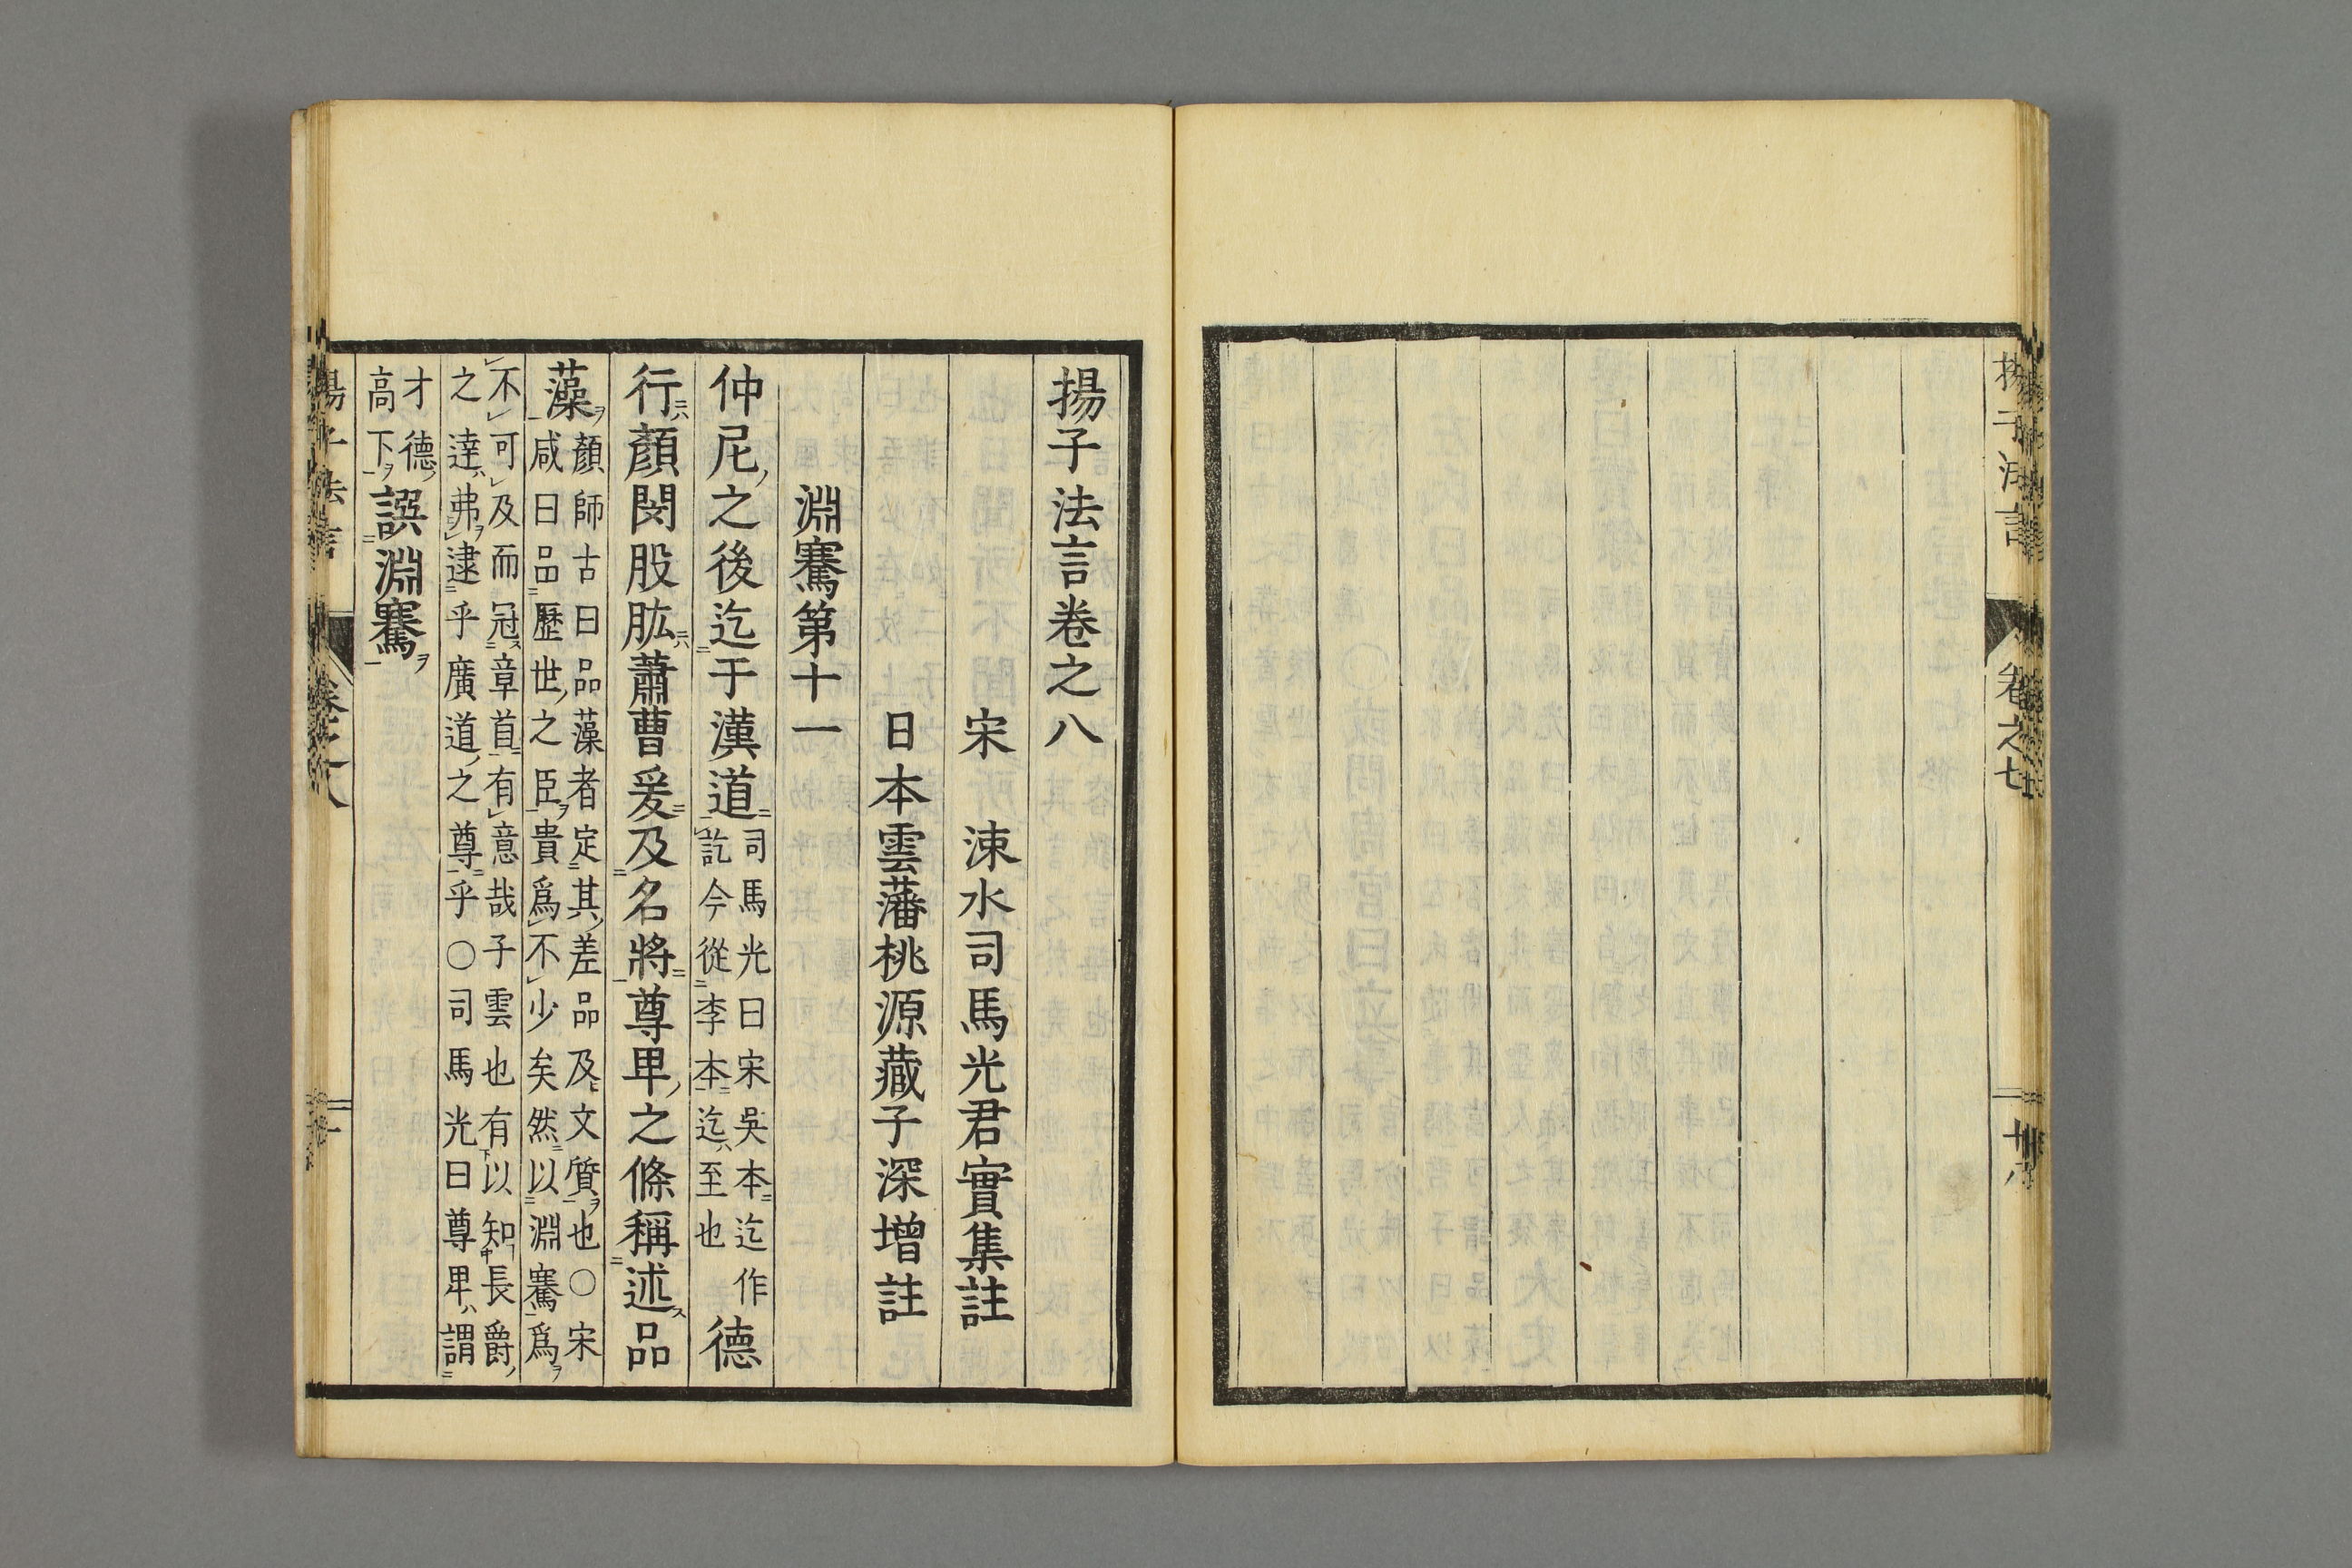 揚子法言卷之八
宋　涑水司馬光君實集註
日本雲藩桃源藏子深增註
淵騫第十一
仲尼之後迄于漢道
司馬光曰宋吳本迄作
訖今從李本迄至也
德
行顏閔股肱蕭曹爰及名將尊卑之條稱述品
藻
顏師古曰品藻者定其差品及文質也○宋
咸曰品歷世之臣貴爲不少矣然以淵騫爲
不可及而冠章首有意哉子雲也有以知長爵
之達弗逮乎廣道之尊乎○司馬光曰尊卑謂
才德
高下
譔淵騫
卷之七